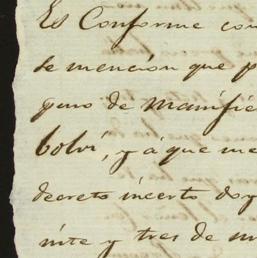 Es Conforme con
se mención que p
puro de manifie
bolví, y á que me
decreto incerto doy
inte y tres de m